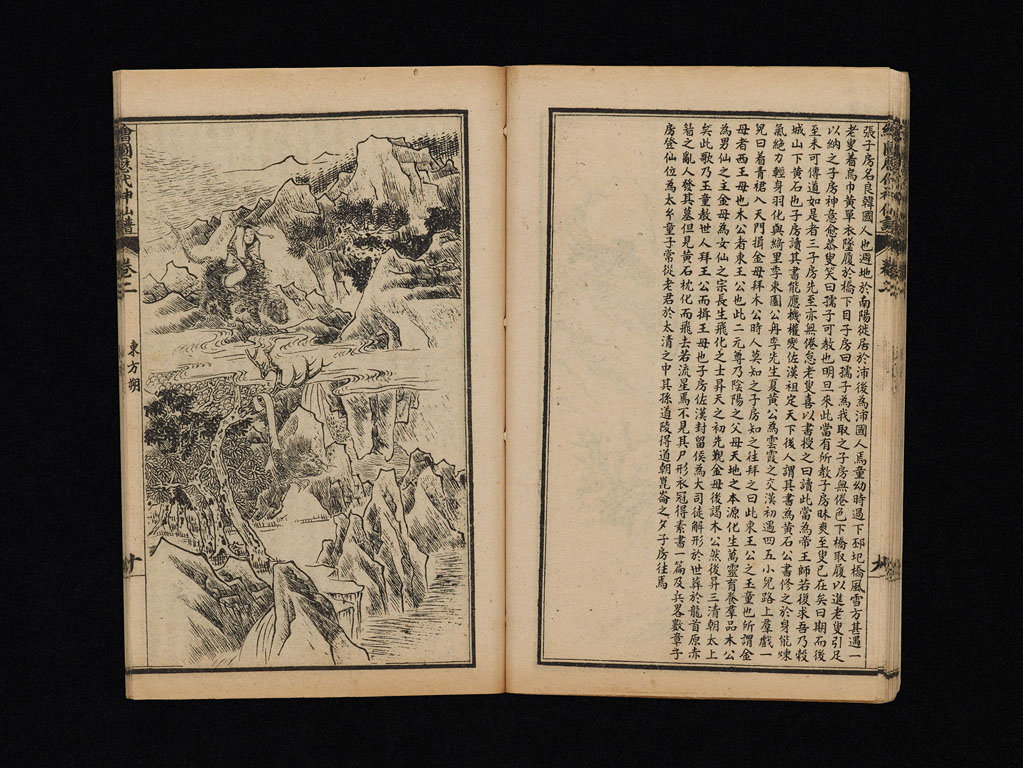 張子房名良韓國人也避地於南陽徙居於沛後為沛國人焉童幼時過下邳圯橋風雪方甚遇一
老叟着烏巾黃單衣墜履於橋下目子房曰孺子為我取之子房無倦色下橋取履以進老叟引足
以納之子房神意愈恭叟笑曰孺子可敎也明旦來此當有所敎子房昧爽至叟已在矣曰期而後
至未可傳道如是者三子房先至亦無倦怠老叟喜以書授之曰讀此當為帝王師若復求吾乃穀
城山下黃石也子房讀其書能應機權變佐漢祖定天下後人謂其書為黃石公書修之於身能煉
氣絶力輕身羽化與綺里季東園公甪李先生夏黃公為雲霞之交漢初遇四五小兒路上羣戲一
兒曰着青裙入天門揖金母拜木公時人莫知之子房知之往拜之曰此東王公之玉童也所謂金
母者西王母也木公者東王公也此二元尊乃陰陽之父母天地之本源化生萬靈育養羣品木公
為男仙之主金母為女仙之宗長生飛化之士昇天之初先覲金母後謁木公然後昇三清朝太上
矣此歌乃玉童敎世人拜王公而揖王母也子房佐漢封留侯為大司徒解形於世葬於龍首原赤
眉之亂人發其墓但見黃石枕化而飛去若流星焉不見其尸形衣冠得素書一篇及兵畧數章子
房登仙位為太𤣥童子常從老君於太清之中其孫道陵得道朝崑崙之夕子房往焉
繪圖歷代神仙譜
卷二
東方朔
十